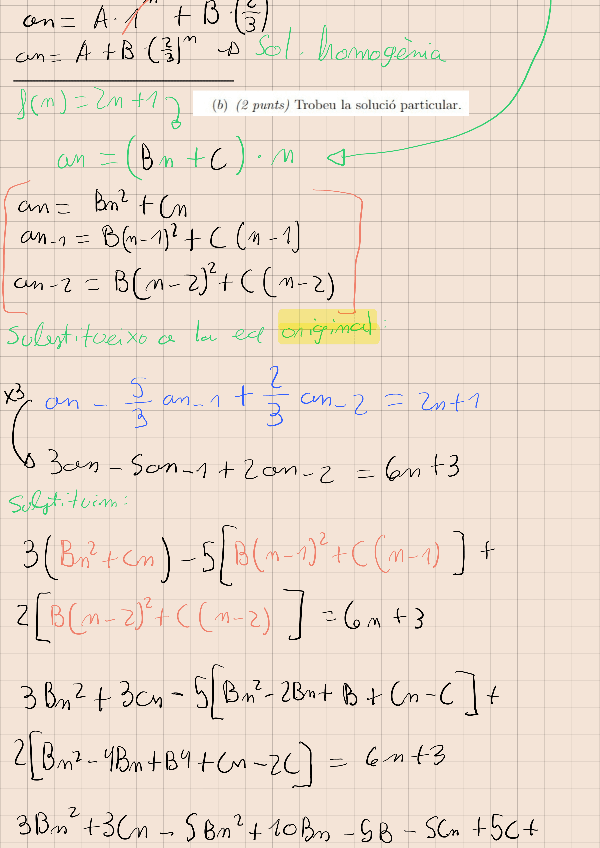 an = A · 1^n + B · (2/3)
an = A + B · (2/3)^n → Sol. homogènia
f(n) = 2n+1
(b) (2 punts) Trobeu la solució particular.
an = (Bn + C) · n
an = Bn² + Cn
an-1 = B(n-1)² + C(n-1]
an-2 = B(n-2)² + C(n-2)
Substitueixo a la eq original:
x3 an - 5/3 an-1 + 2/3 an-2 = 2n+1
3an - 5an-1 + 2an-2 = 6n+3
Substituim:
3(Bn² + Cn) - 5[B(n-1)² + C(n-1)] +
2[B(n-2)² + C(n-2)] = 6n + 3
3Bn² + 3Cn - 5[Bn² - 2Bn + B + Cn - C] +
2[Bn² - 4Bn + B4 + Cn - 2C] = 6n + 3
3Bn² + 3Cn - 5Bn² + 10Bn - 5B - 5Cn + 5C +